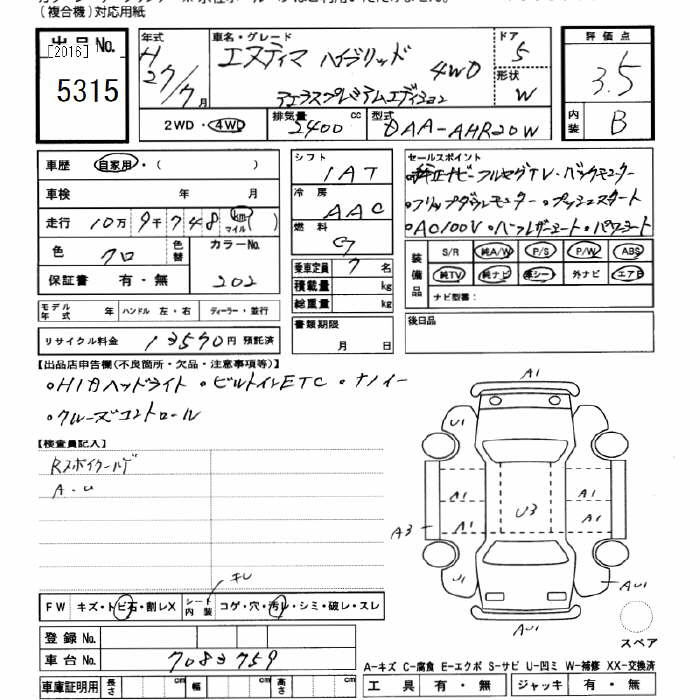 (複合機)対応用紙
出品No.
[2016]
5315
年式 H 27/7月
車名・グレード エスティマ ハイブリッド 4WD
アエラスプレミアムエディション
ドア 5
形状 W
2WD・4WD
排気量 2400 cc
型式 DAA-AHR20W
評価点 3.5
内装 B
車歴 自家用・( )
車検 年 月
走行 10万9千748 km マイル ( )
色 クロ 色替 カラーNo. 202
保証書 有・無
モデル年式 年 ハンドル 左・右 ディーラー・並行
リサイクル料金 13590円 預託済
シフト IAT
冷房 AAC
燃料 G
乗車定員 7名
積載量 kg
総重量 kg
書類期限
月 日
セールスポイント
・純正ナビ・フルセグTV・バックモニター
・フリップダウンモニター・プッシュスタート
・AC100V・ハーフレザーシート・パワーシート
装備品 S/R 純A/W P/S P/W ABS
純TV 純ナビ 革シート 外ナビ エアB
ナビ型番:
後日品
【出品店申告欄(不良箇所・欠品・注意事項等)】
・HIDヘッドライト ・ビルトインETC ・ナノイー
・クルーズコントロール
【検査員記入】
Rスポイラー
A・U
キレ
FW キズ・トビ石・割レX シート内装 コゲ・穴・汚レ・シミ・破レ・スレ
登録No.
車台No. 7083759
車庫証明用 長さ cm 幅 cm 高さ cm
A1
U1
A1 A1
A1 U3 A1
A3
U1 AU1
AU1
スペア
A-キズ C-腐食 E-エクボ S-サビ U-凹ミ W-補修 XX-交換済
工具 有・無 ジャッキ 有・無